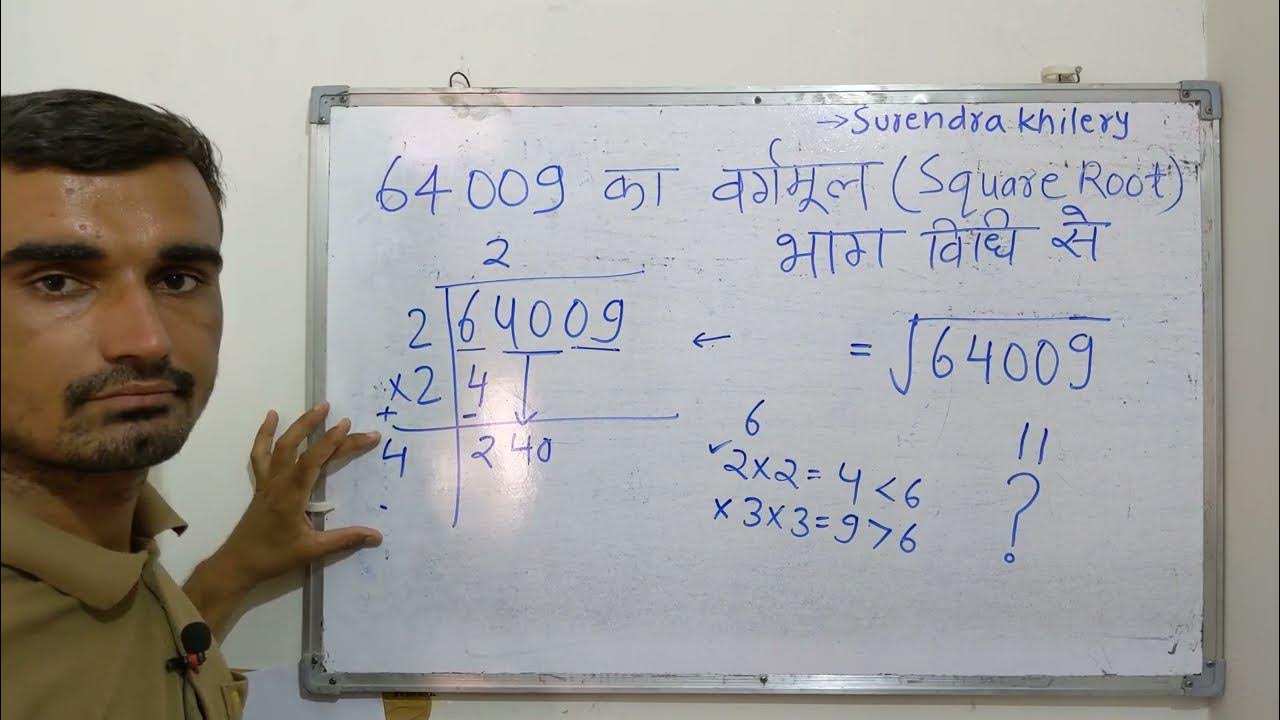 →Surendra khilery
64009 का वर्गमूल (Square Root)
भाग विधि से
2
2 64009 ← = √64009
×2 4
+ -
4 240
6
✓2×2=4<6
×3×3=9>6
||
?